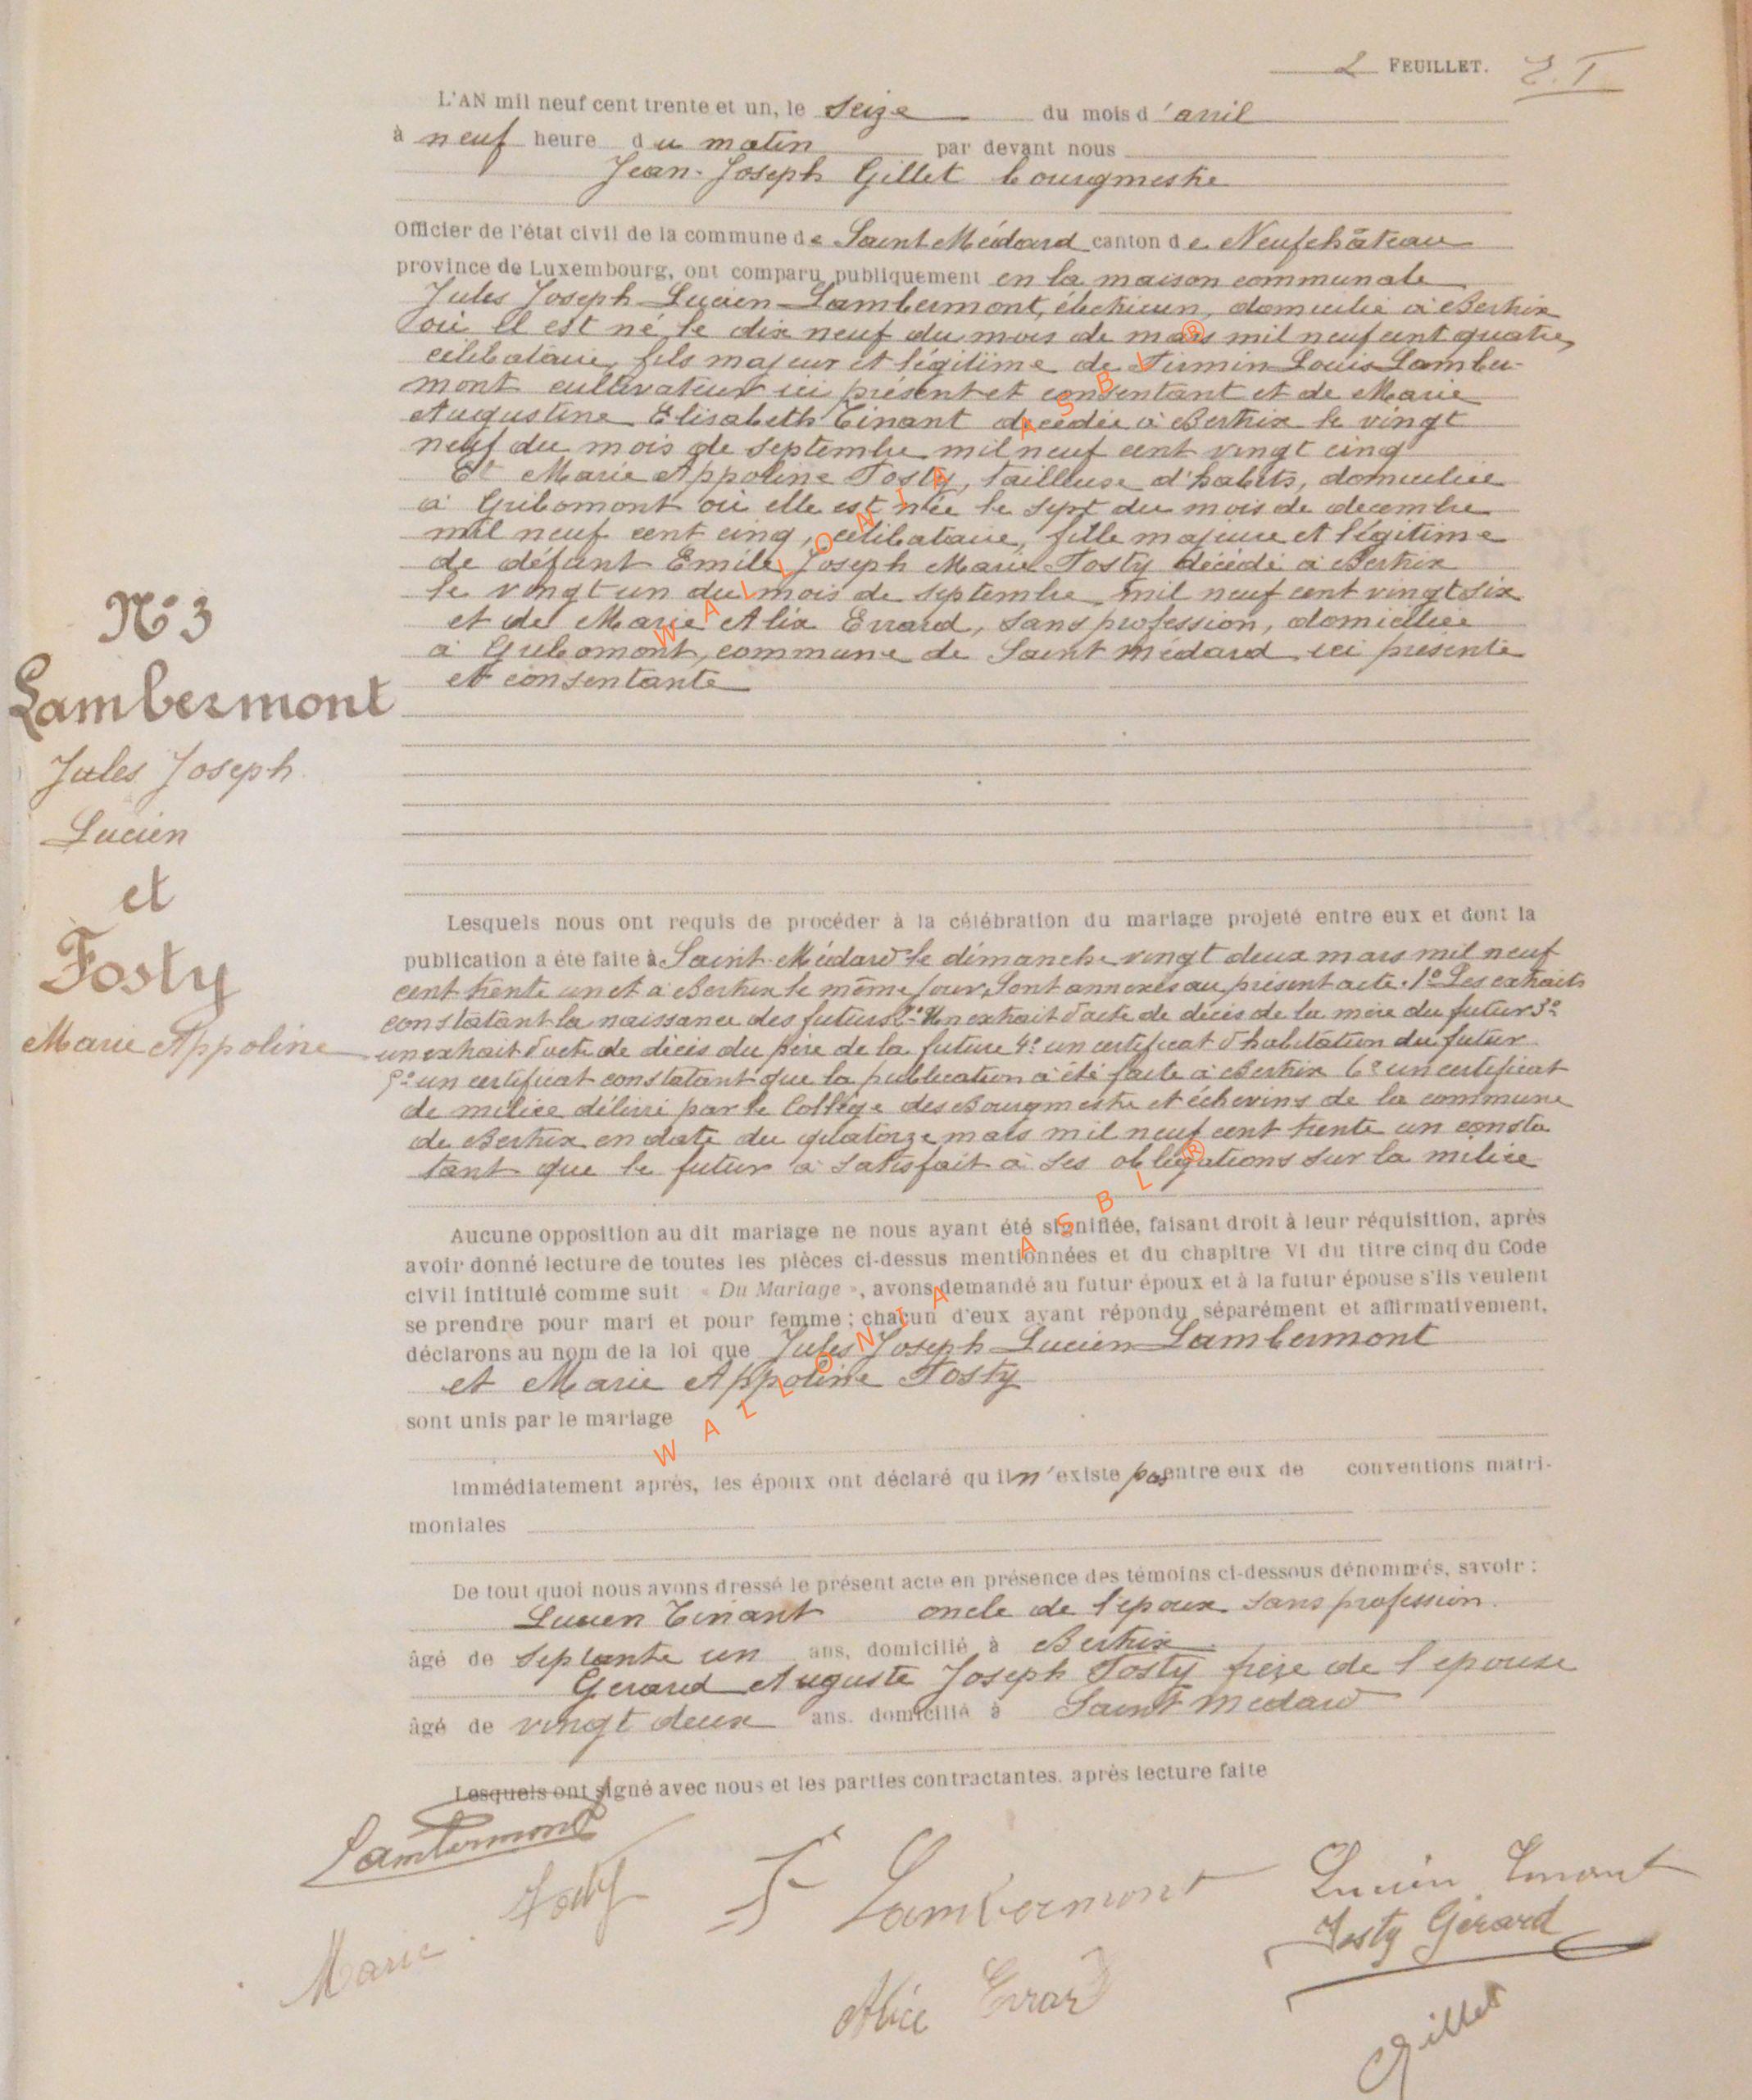 2 FEUILLET.
L'AN mil neuf cent trente et un, le seize du mois d'avril
à neuf heure du matin par devant nous
Jean-Joseph Gillet bourgmestre
Officier de l'état civil de la commune de Saint Médard canton de Neufchâteau
province de Luxembourg, ont comparu publiquement en la maison communale
Jules Joseph Lucien Lambermont, électricien, domicilié à Bertrix
où il est né le dix neuf du mois de mars mil neuf cent quatre,
célibataire, fils majeur et légitime de Firmin Louis Lamber-
mont cultivateur ici présent et consentant et de Marie
Augustine Elisabeth Tinant décédée à Bertrix le vingt
neuf du mois de septembre mil neuf cent vingt cinq
Et Marie Appoline Fosty, tailleuse d'habits, domiciliée
à Gribomont où elle est née le sept du mois de décembre
mil neuf cent cinq, célibataire, fille majeure et légitime
de défunt Emile Joseph Marie Fosty décédé à Bertrix
le vingt un du mois de septembre mil neuf cent vingt six
et de Marie Alix Errard, sans profession, domiciliée
à Gribomont, commune de Saint Médard, ici présente
et consentante
N° 3
Lambermont
Jules Joseph
Lucien
et
Fosty
Marie Appoline
Lesquels nous ont requis de procéder à la célébration du mariage projeté entre eux et dont la
publication a été faite à Saint-Médard le dimanche vingt deux mars mil neuf
cent trente un et à Bertrix le même jour. Sont annexés au présent acte. 1° Les extraits
constatant la naissance des futurs 2° Un extrait d'acte de décès de la mère du futur 3°
un extrait d'acte de décès du père de la future 4° un certificat d'habitation du futur
5° un certificat constatant que la publication a été faite à Bertrix 6° un certificat
de milice délivré par le Collège des Bourgmestre et échevins de la commune
de Bertrix en date du quatorze mars mil neuf cent trente un consta
tant que le futur a satisfait à ses obligations sur la milice
Aucune opposition au dit mariage ne nous ayant été signifiée, faisant droit à leur réquisition, après
avoir donné lecture de toutes les pièces ci-dessus mentionnées et du chapitre VI du titre cinq du Code
civil intitulé comme suit : « Du Mariage », avons demandé au futur époux et à la futur épouse s'ils veulent
se prendre pour mari et pour femme ; chacun d'eux ayant répondu séparément et affirmativement,
déclarons au nom de la loi que Jules Joseph Lucien Lambermont
et Marie Appoline Fosty
sont unis par le mariage
Immédiatement après, les époux ont déclaré qu'il n'existe pas entre eux de conventions matri-
moniales
De tout quoi nous avons dressé le présent acte en présence des témoins ci-dessous dénommés, savoir :
Lucien Tinant oncle de l'époux sans profession
âgé de septante un ans, domicilié à Bertrix
Gérard Auguste Joseph Fosty frère de l'épouse
âgé de vingt deux ans, domicilié à Saint Médard
Lesquels ont signé avec nous et les parties contractantes, après lecture faite
Lambermont
Marie Fosty
F Lambermont
Lucien Tinant
Fosty Gérard
Alice Errard
Gillet
WALLONIA ASBL ®
WALLONIA ASBL ®